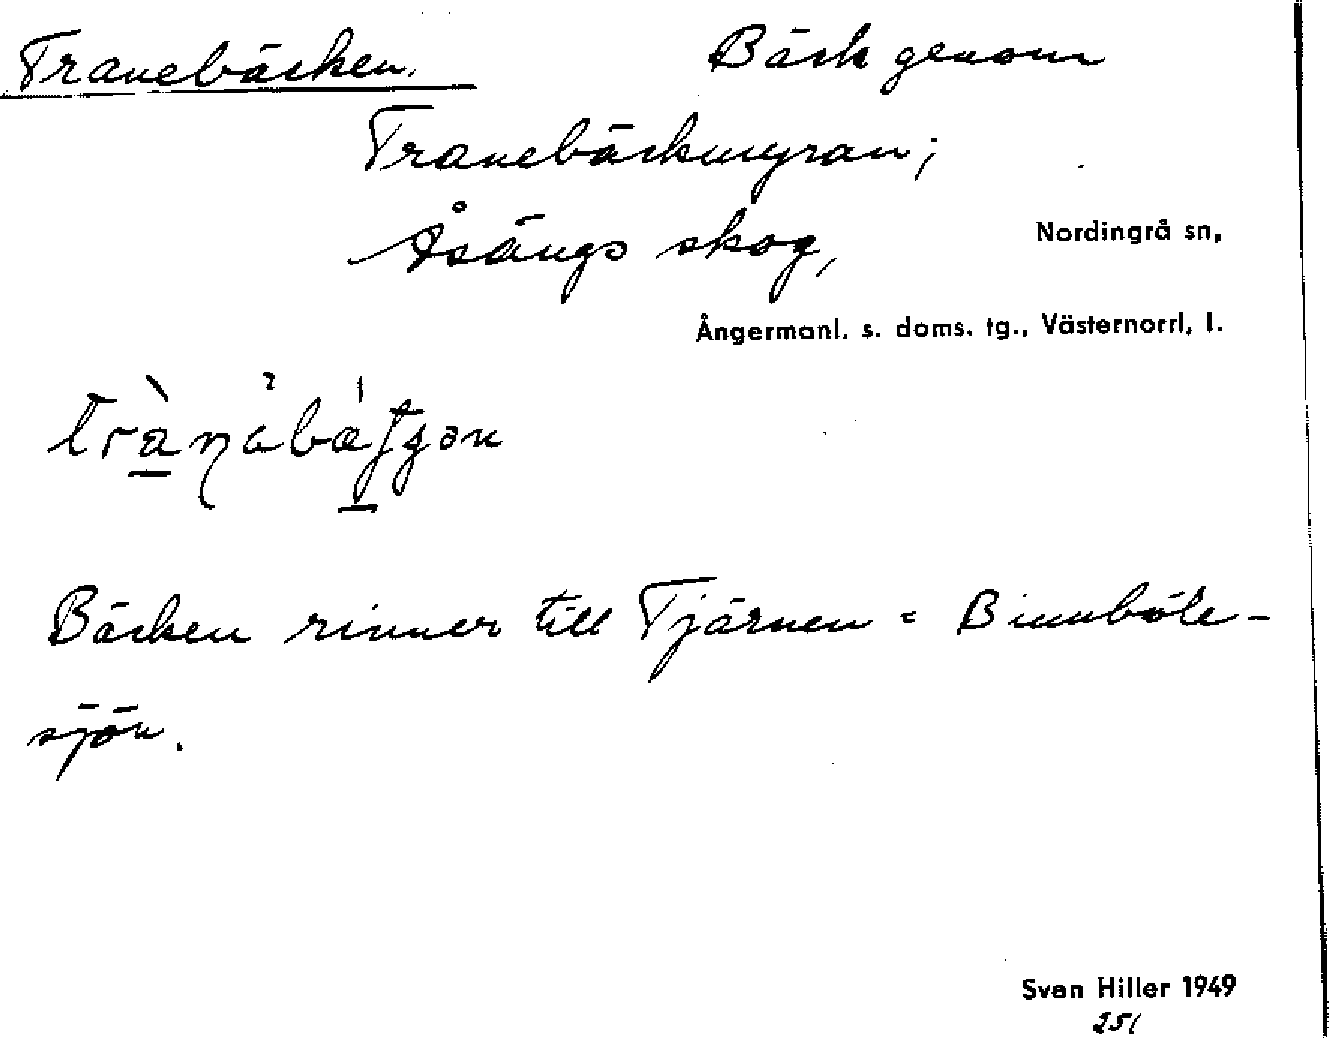 Tranebäcken. Bäck genom
Tranebäckmyran;
Åsängs skog, Nordingrå sn,
Ångermanl. s. doms. tg., Västernorrl. l.
Bäcken rinner till Tjärnen = Binnböle-
sjön.
Svan Hiller 1949
251